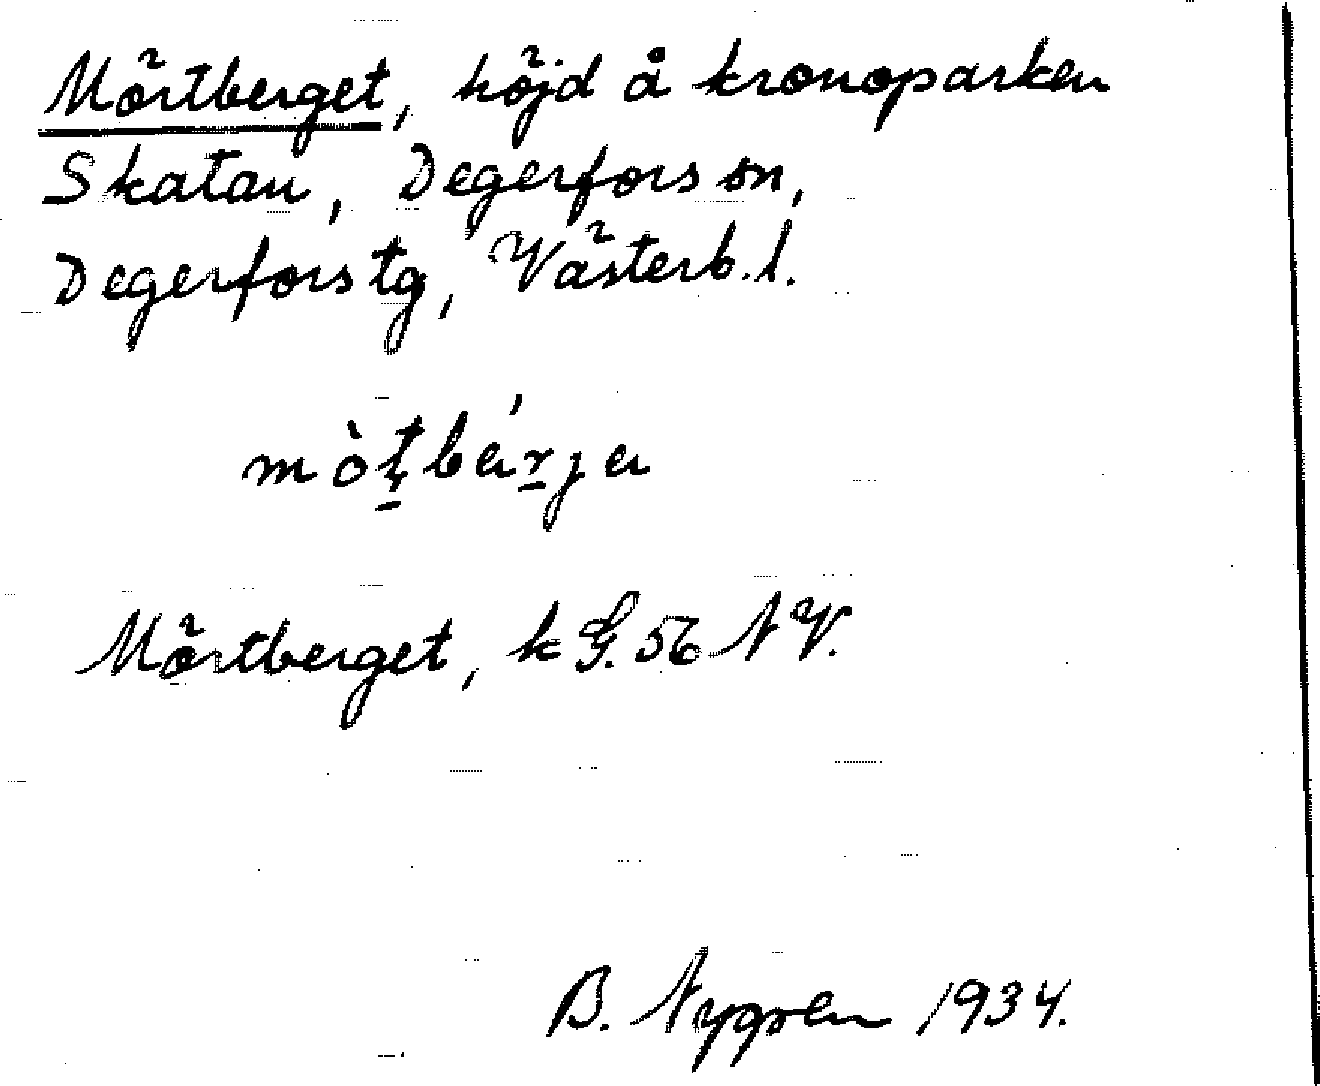 Mörtberget, höjd å kronoparken
Skatan, Degerfors sn,
Degerfors tg, Västerb. l.
mòt̠bár̠ja
Mörtberget, k G. 56 NV.
B. Nygren 1934.